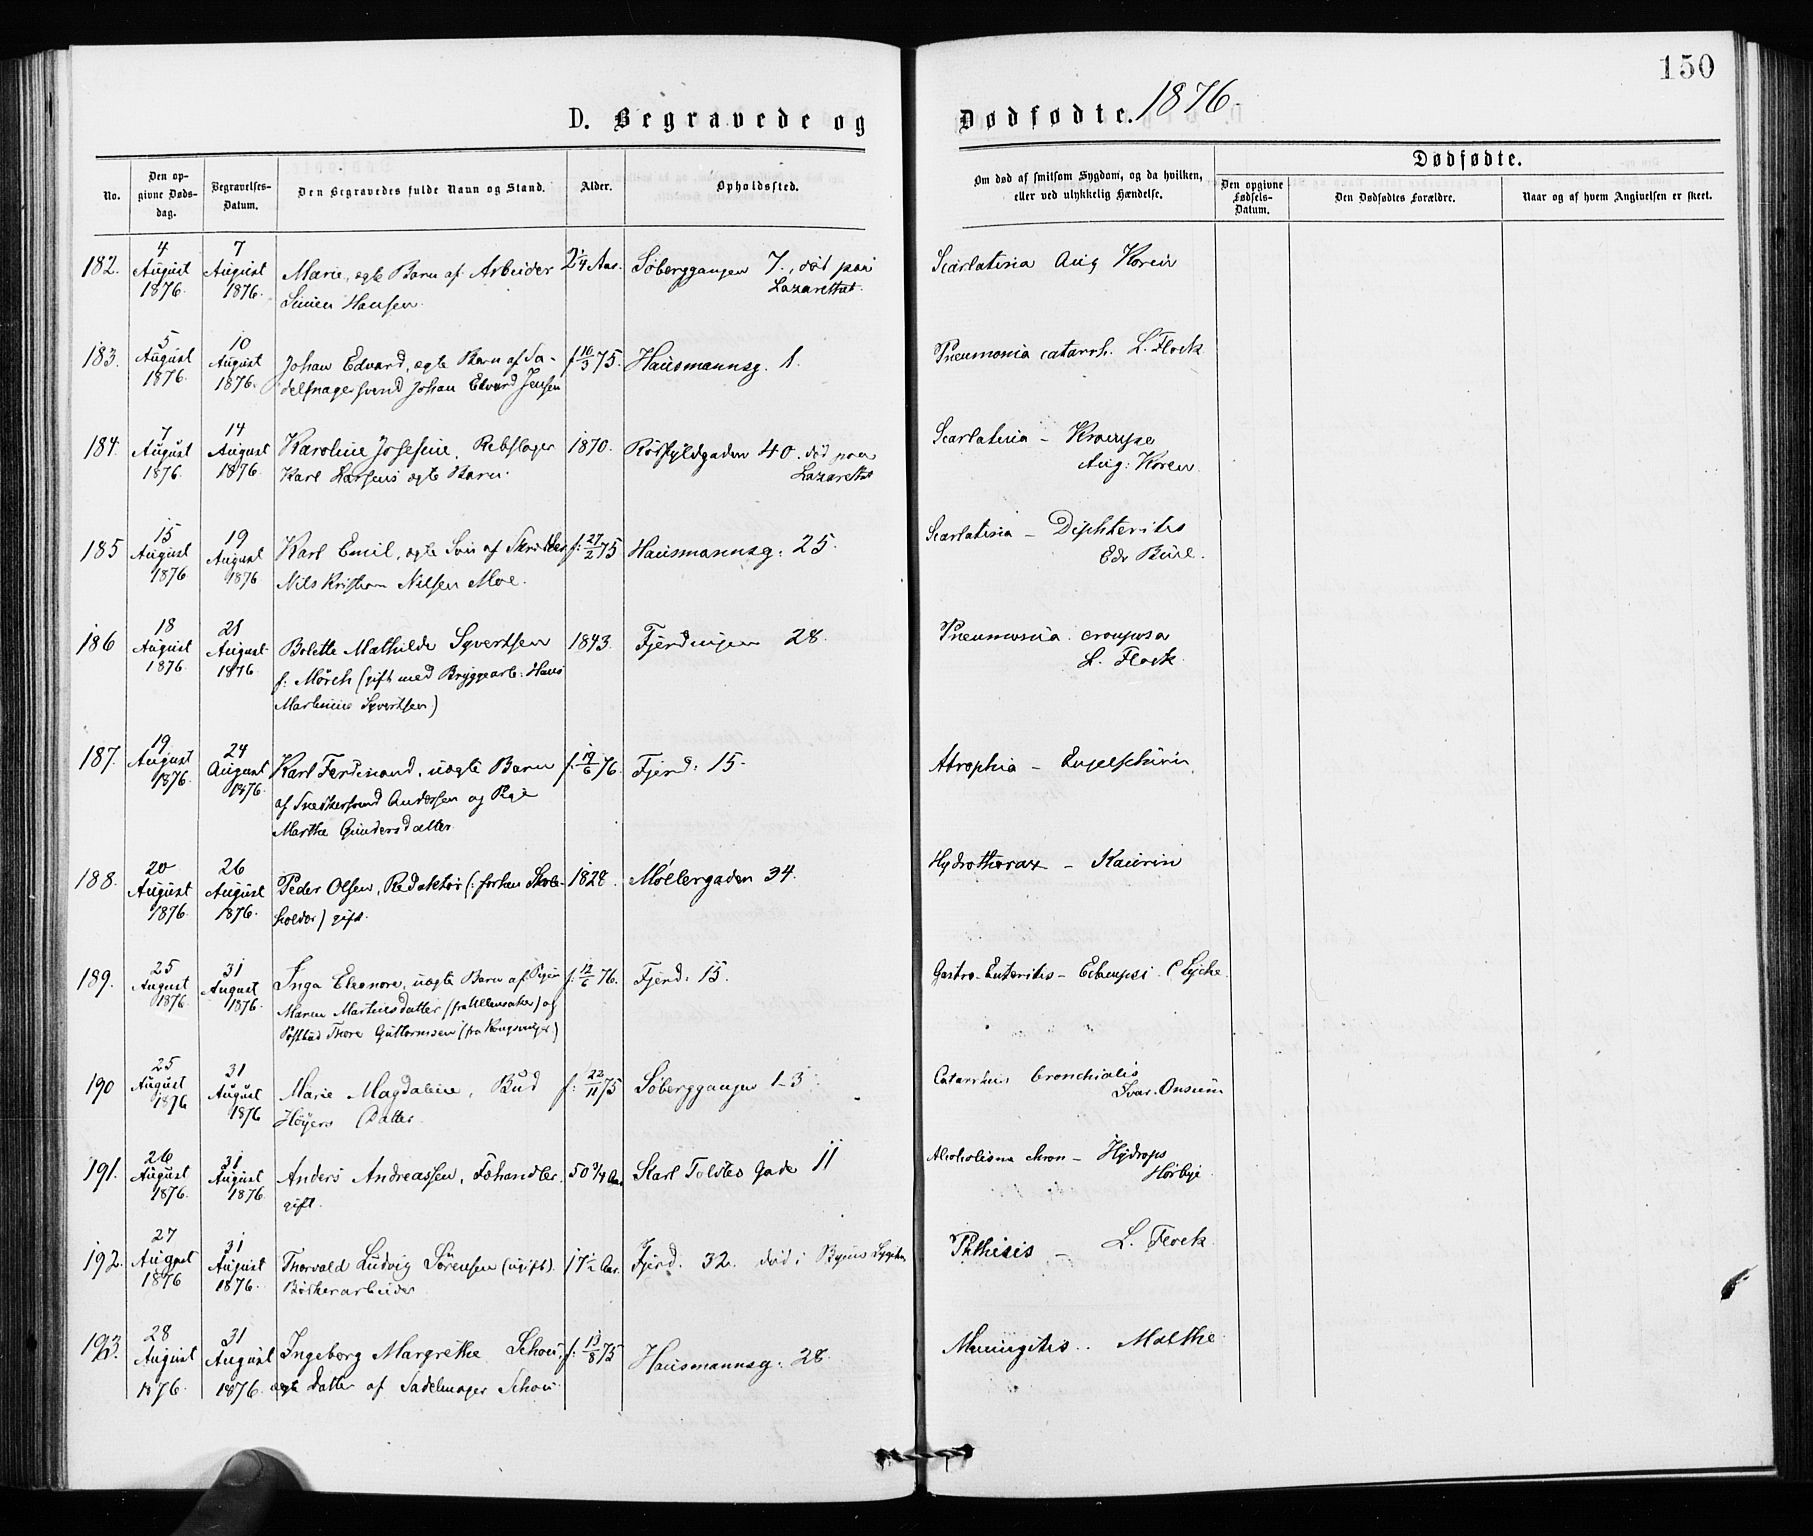 150
D. Begravede og Dødfødte. 1876.
No.
Den opgivne Dødsdag.
Begravelses-Datum.
Den Begravedes fulde Navn og Stand.
Alder.
Opholdssted.
Om død af smitsom Sygdom, og da hvilken, eller ved ulykkelig Hændelse.
Dødfødte.
Den opgivne Fødsels-Datum.
Den Dødfødtes Forældre.
Naar og af hvem Angivelsen er skeet.
182. 4 August 1876. 7 August 1876. Marie, egte Barn af Arbeider 2 1/4 Aar. Søberggangen 7., død paa Scarlatina Aug Koren
Simen Hansen. Lazarettet.
183. 5 August 1876. 10 August 1876. Johan Edvard, egte Barn af Sa- f 16/3 75. Hausmannsg. 1. Pneumonia catarrh. L. Flock
delmagersvend Johan Edvard Jensen
184. 7 August 1876. 14 August 1876. Karoline Josefine, Rebslager 1870. 40. død paa Scarlatina - Kroupe
Karl egte Barn. Lazarettet Aug: Koren
185 15 August 1876 19 August 1876 Karl Emil, egte Søn af f: 27/2 75 Hausmannsg: 25. Scarlatina - Diphterites
Nils Kristian Nilsen Moe. Edv Bull.
186 18 August 1876. 21 August 1876. Bolette Mathilde Syvertsen 1843. Fjerdingen 28. Pneumonia crouposa
f: Mörch (gift med Bryggearb: Hans L. Flock
Martinius Syvertsen)
187. 19 August 1876. 24 August 1876. Karl Ferdinand, uegte Barn f. 19/6 76. Fjerd: 15. Atrophia - Engelschiön
af Snedkersvend Andersen og Pige
Marthe Gundersdatter.
188. 20 August 1876. 26 August 1876. Peder Olsen, Redaktör (: forhen Skole- 1828. Møllergaden 34. Hydrothorax - Kaurin
holder) gift.
189. 25 August 1876. 31 August 1876. Inga Eleonore, uegte Barn af Pigen f. 12/6 76. Fjerd: 15. Gastro-Enteritis - Eclampsi. C Lyche
Maren Martinsdatter (fra Ullensaker) og
Postbud Thore Guttormsen (fra Kongsvinger)
190 25 August 1876 31 August 1876 Marie Magdalene, Bud f: 22/11 75 Søberggangen 1-3. Catarrhus bronchialis
Höyers Datter. Ivar. Onsum
191. 26 August 1876. 31 August 1876. Anders Andreassen, Fehandler. 50 3/4 Aar Karl Toldbo Gade 11 Alcoholisme chron - Hydrops
gift. Hörbye
192. 27 August 1876 31 August 1876. Thorvald Ludvig Sörensen (ugift). 17 1/2 Aar. Fjerd. 32. død i Byens Phthisis - L. Flock
Bödkerarbeider
193. 28 August 1876. 31 August 1876. Ingeborg Margrethe Schou, f: 13/8 75 Hausmannsg: 28. Meningitis.. Malthe
egte Datter af Sadelmager Schou.